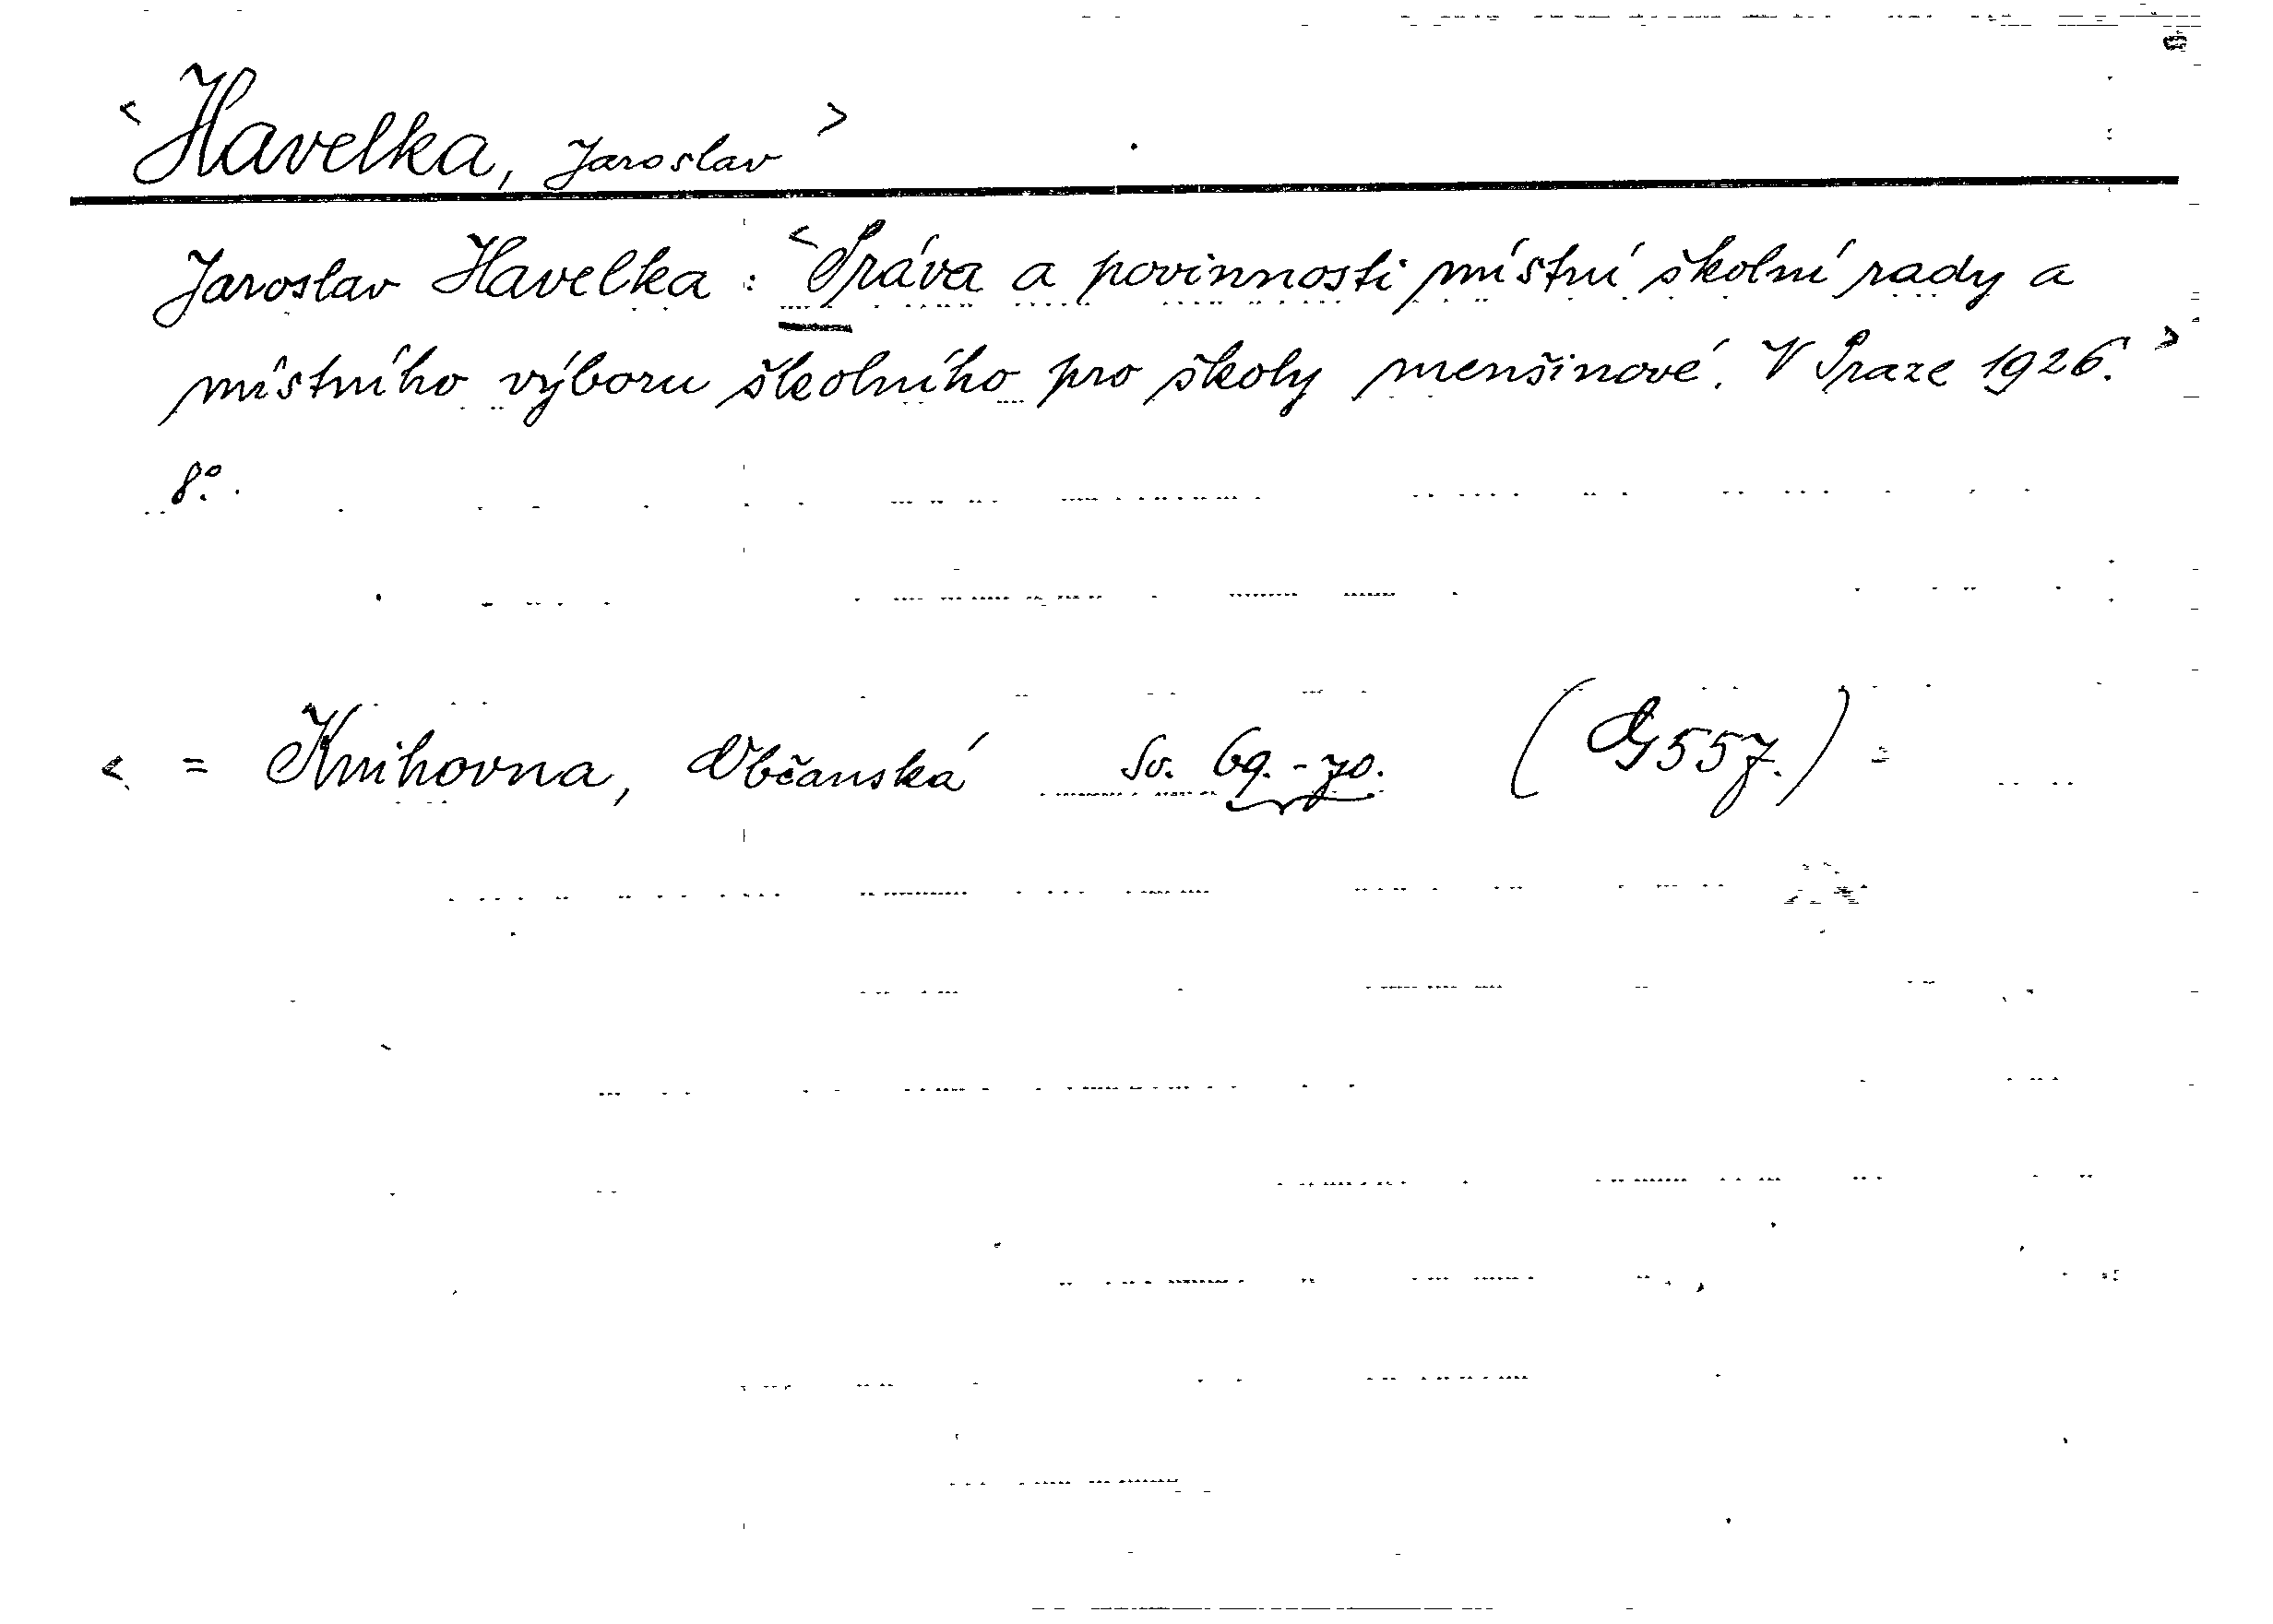 <Havelka, Jaroslav>
Jaroslav Havelka: <Práva a povinnosti místní školní rady a
místního výboru školního pro školy menšinové. V Praze 1926.>
8°.
< = Knihovna, Občanská Sv. 69.-70. (G 557.) =